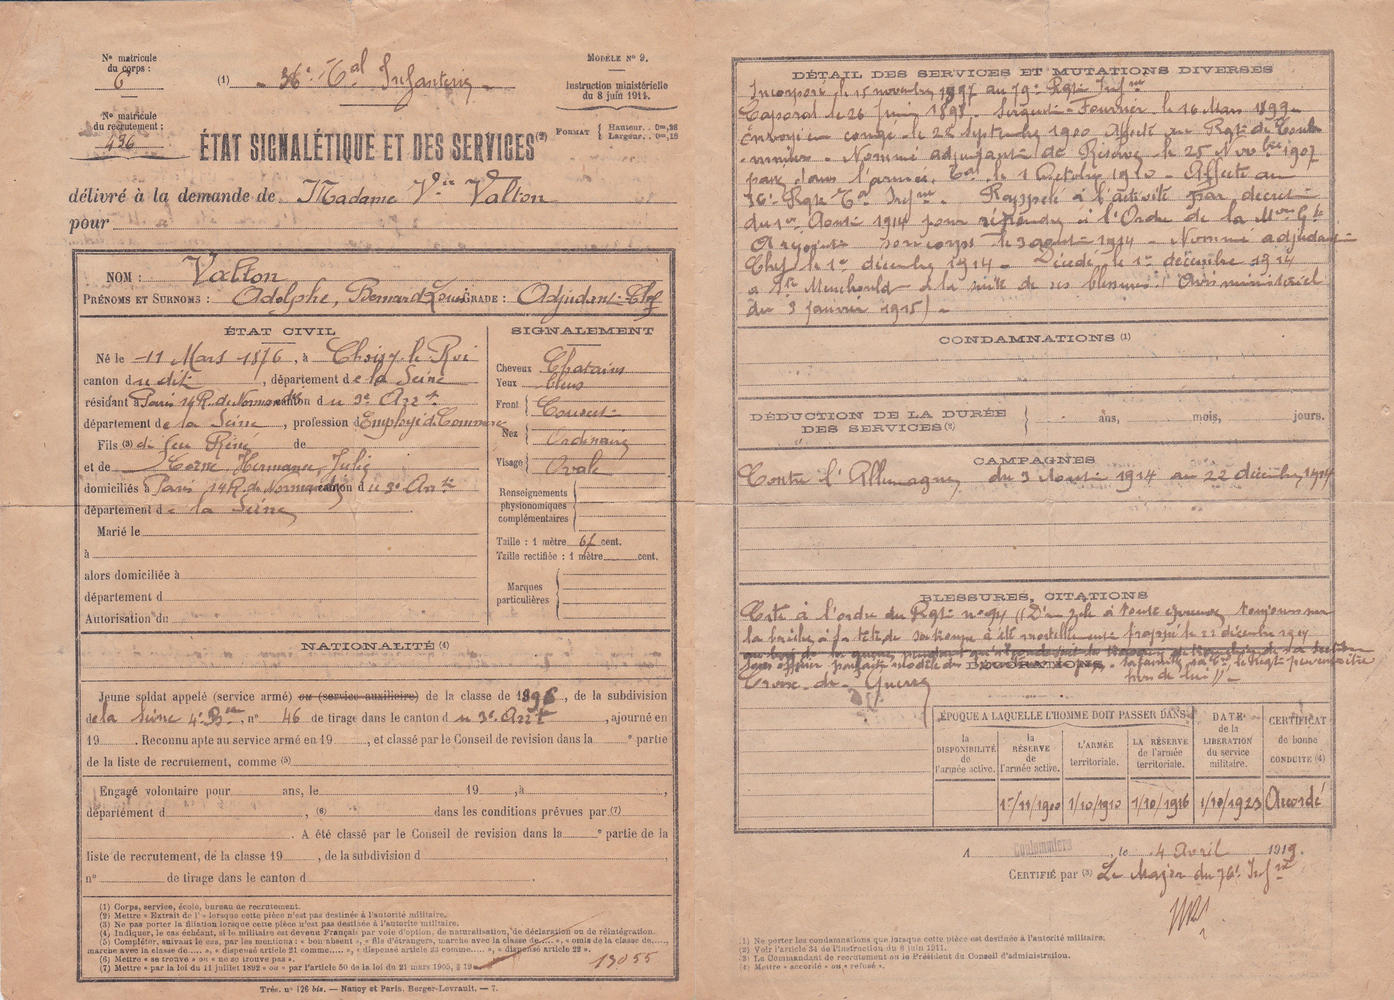 N° matricule
du corps :
6
(1) 36e Tal Infanterie
MODÈLE N° 9.
Instruction ministérielle
du 8 juin 1911.
N° matricule
du recrutement :
436
FORMAT { Hauteur.. 0m,38
Largeur.. 0m,18
ÉTAT SIGNALÉTIQUE ET DES SERVICES(2)
délivré à la demande de Madame Vve Valton
pour
NOM : Valton
PRÉNOMS ET SURNOMS : Adolphe, Bernard Louis GRADE : Adjudant-Chef
ÉTAT CIVIL
Né le 11 Mars 1876, à Choisy-le-Roi
canton du dit, département de la Seine
résidant à Paris 14 R. de Normandie canton du 3e Arrt
département de la Seine, profession d'Employé de Commerce
Fils (3) di feu Réné de
et de Horne Hermance, Julie
domiciliés à Paris 14 R. de Normandie canton du 3e Arrt
département de la Seine
Marié le
à
alors domiciliée à
département d
Autorisation du
SIGNALEMENT
Cheveux Chatains
Yeux bleus
Front Couvert
Nez Ordinaire
Visage Ovale
Renseignements
physionomiques
complémentaires
Taille : 1 mètre 61 cent.
Taille rectifiée : 1 mètre cent.
Marques
particulières
NATIONALITÉ (4)
Jeune soldat appelé (service armé) ou (service auxiliaire) de la classe de 1896, de la subdivision
de la Seine 4e Bau, n° 46 de tirage dans le canton du 3e Arrt, ajourné en
19 . Reconnu apte au service armé en 19 , et classé par le Conseil de revision dans la e partie
de la liste de recrutement, comme (5)
Engagé volontaire pour ans, le 19 , à ,
département d , (6) dans les conditions prévues par (7)
. A été classé par le Conseil de revision dans la e partie de la
liste de recrutement, de la classe 19 , de la subdivision d
n° de tirage dans le canton d .
(1) Corps, service, école, bureau de recrutement.
(2) Mettre « Extrait de l' » lorsque cette pièce n'est pas destinée à l'autorité militaire.
(3) Ne pas porter la filiation lorsque cette pièce n'est pas destinée à l'autorité militaire.
(4) Indiquer, le cas échéant, si le militaire est devenu Français par voie d'option, de naturalisation, de déclaration ou de réintégration.
(5) Compléter, suivant le cas, par les mentions : « bon absent », « fils d'étrangers, marche avec la classe de..... », « omis de la classe de.....,
marche avec la classe de..... », « dispensé article 21 comme..... », « dispensé article 23 comme..... », « dispensé article 22 ».
(6) Mettre « se trouve » ou « ne se trouve pas ».
(7) Mettre « par la loi du 11 juillet 1892 » ou « par l'article 50 de la loi du 21 mars 1905, § 19
13055
Trés. n° 126 bis. — Nancy et Paris, Berger-Levrault. — 7.
DÉTAIL DES SERVICES ET MUTATIONS DIVERSES
Incorporé le 15 novembre 1897 au 79e Regt Infrie
Caporal le 26 Juin 1898, Sergent-Fourrier le 16 Mars 1899
envoyé en congé le 28 Septembre 1900 Affecté au Regt de Coulo-
mmiers - Nommé adjudant de Réserve le 25 Novbre 1907
passé dans l'armée Tal le 1 Octobre 1910 - Affecté au
36e Regt Tal Infrie. Rappelé à l'activité par décret
du 1er Août 1914 pour répondre à l'Ordre de la Mon Gle
Arrivé à son corps le 3 août 1914 - Nommé adjudant
Chef le 1er décembre 1914 - Décédé le 1er décembre 1914
à Ste Menehould à la suite de ses blessures (Avis ministériel
du 3 janvier 1915) -
CONDAMNATIONS (1)
DÉDUCTION DE LA DURÉE
DES SERVICES (2) { ans, mois, jours.
CAMPAGNES
Contre l'Allemagne du 3 Août 1914 au 22 décembre 1914
BLESSURES, CITATIONS
Cité à l'ordre du Regt n° 94 (D'un zèle à toute épreuve, toujours sur
la brèche, à la tête de sa troupe a été mortellement frappé le 11 décembre 1914
Sous officier parfait modèle du la famille sa Cie le Regt peuvent être
fiers de lui) -
DÉCORATIONS
Croix de Guerre
ÉPOQUE A LAQUELLE L'HOMME DOIT PASSER DANS
la DISPONIBILITÉ de l'armée active.
la RÉSERVE de l'armée active.
L'ARMÉE territoriale.
LA RÉSERVE de l'armée territoriale.
DATE de la LIBERATION du service militaire.
CERTIFICAT de bonne CONDUITE (4)
1er/11/1900 1/10/1910 1/10/1916 1/10/1923 Accordé
A Coulommiers, le 4 Avril 1919.
CERTIFIÉ par (3) Le Major du 76e Infrie
(1) Ne porter les condamnations que lorsque cette pièce est destinée à l'autorité militaire.
(2) Voir l'article 34 de l'instruction du 8 juin 1911.
(3) Le Commandant de recrutement ou le Président du Conseil d'administration.
(4) Mettre « accordé » ou « refusé ».